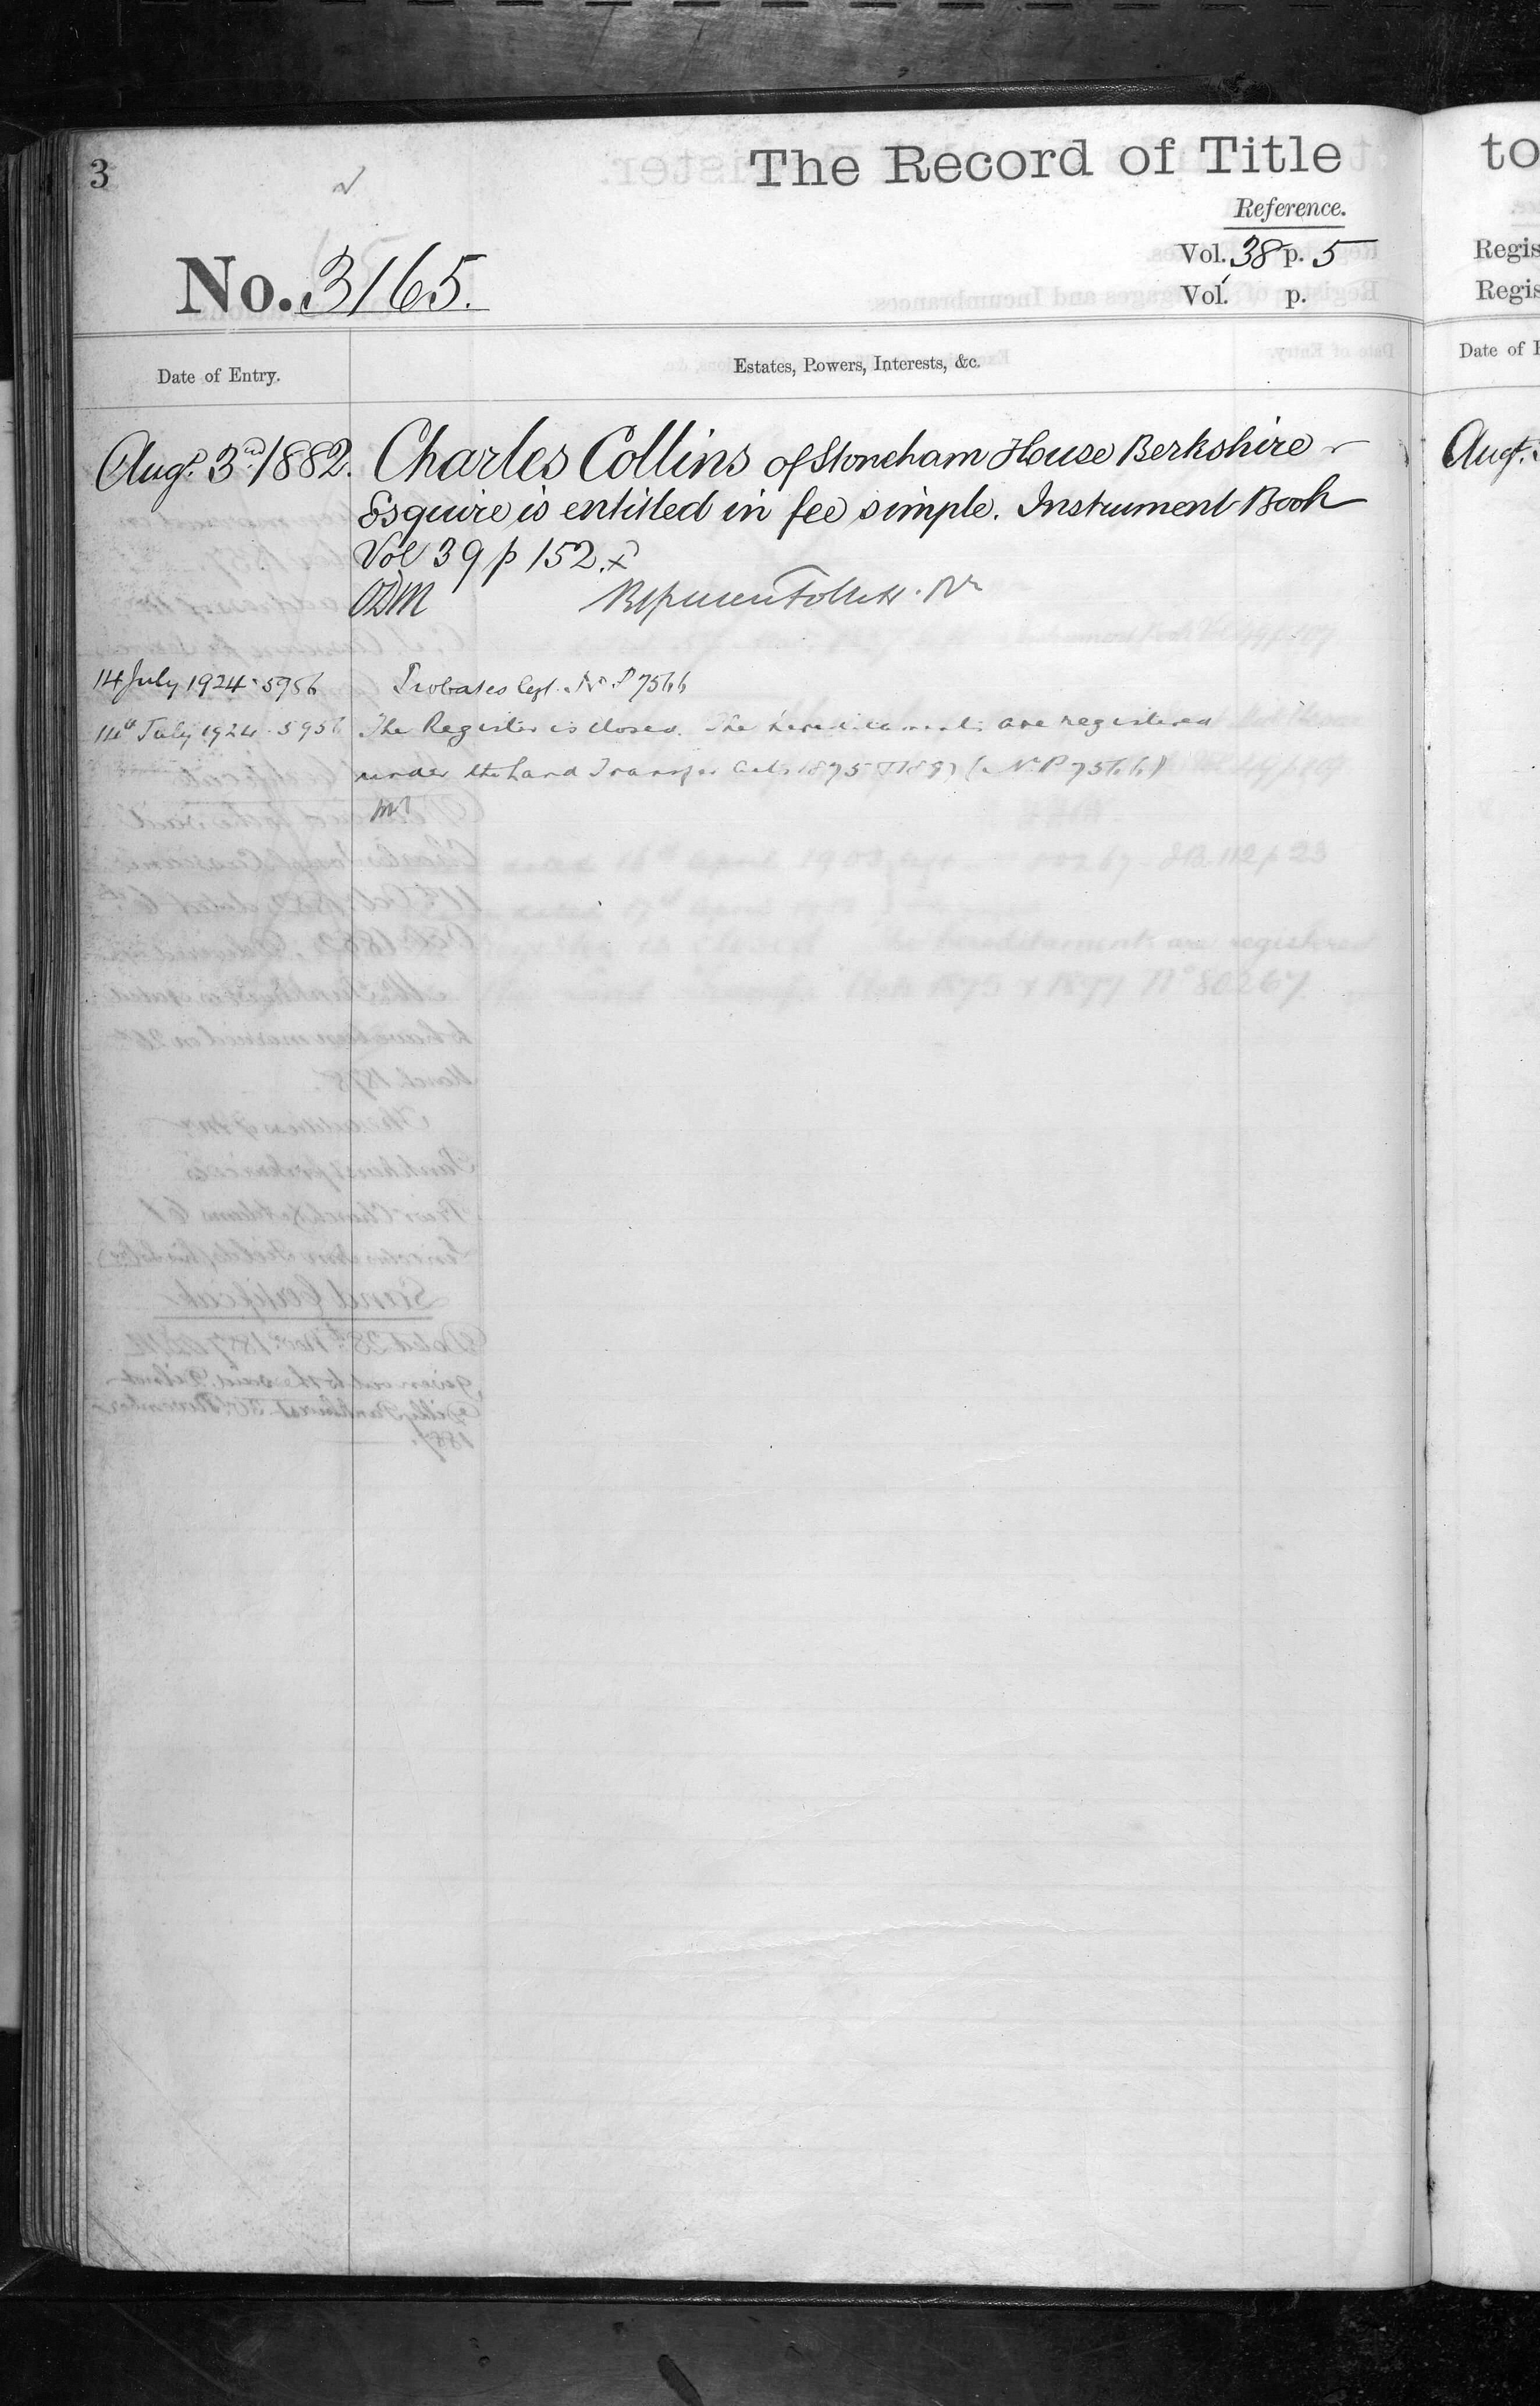 3
The Record of Title
Reference.
No. 3165.
Vol. 38 p. 5
Vol. p.
Date of Entry.
Estates, Powers, Interests, &c.
Augt. 3rd. 1882. Charles Collins of Stoneham House Berkshire
Esquire is entitled in fee simple. Instrument Book
Vol 39 p 152. x
ODM
14 July 1924 · 5956 Probates No. P 7566
14th July 1924 · 5956 The Register is closed. The hereditaments are registered
under the Land Transfer Acts 1875 & 1897 (No. P 7566)
to
Regis
Regis
Date of E
Augt.